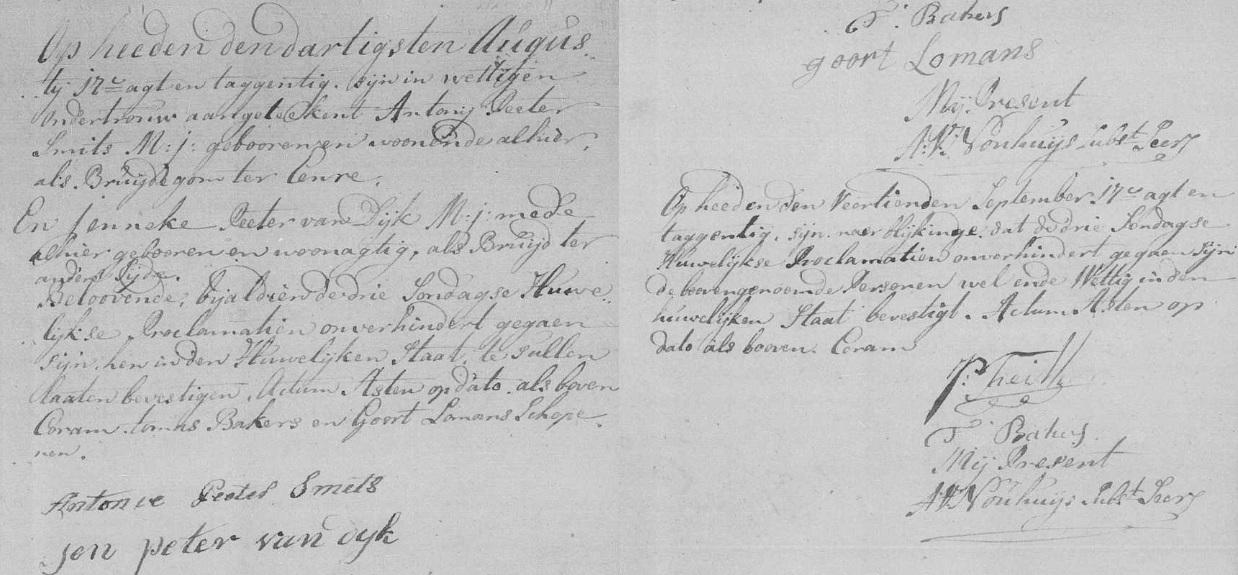 Op heeden den dartigsten Augus
ty 17c agt en taggentig. sijn in wettigen
Ondertrouw aangeteekent Antonij Peeter
Smits M: j: gebooren en woonende alhier,
als Bruijdegom ter Eenre,
En Jenneke Peeter van Dijk M: j: mede
alhier gebooren en woonagtig, als Bruijd ter
andere sijde.
Beloovende, bij aldien de drie Sondagse Huwe
lijkse Proclamatien onverhindert gegaen
sijn hen in den Huwelijken Staat te sullen
laaten bevestigen, Actum Asten op dato als boven
Coram tomas Bakers en Goort Lomans Schepe
nen.
Antonie Peeter Smets
Jen peter van dyk
T. Bakers
goort Lomans
Mij Present
A:V: Nouhuijs Subst Secrs
Op heeden den Veertienden September 17c agt en
taggentig, sijn naer blijkinge dat de drie Sondagse
Huwelijkse Proclamatien onverhindert gegaen sijn
de bovengenoemde Persoonen wel ende Wettig in den
huwelijken Staat bevestigt. Actum Asten op
dato als booven. Coram
T. Bakers.
Mij Present
A V Nouhuijs Subst Secrs